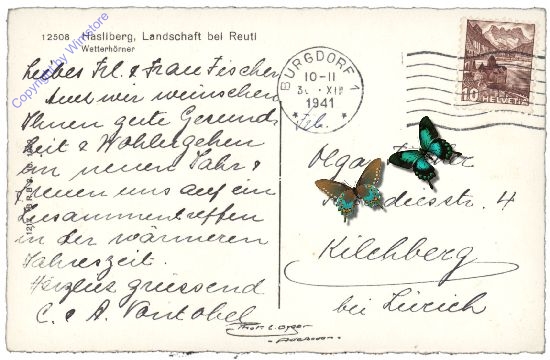 12508 Hasliberg, Landschaft bei Reuti
Wetterhörner
Liebes Frl. & Frau Fischer
Auch wir wünschen
Ihnen gute Gesund-
heit & Wohlergehen
im neuen Jahr &
freuen uns auf ein
Zusammentreffen
in der wärmeren
Jahreszeit.
Herzlich grüssend
C. & A. Vontobel
BURGDORF 1
10-11
31. XII
1941
10 HELVETIA
Olga
4
Kilchberg
bei Zürich
Copyright by Winstone